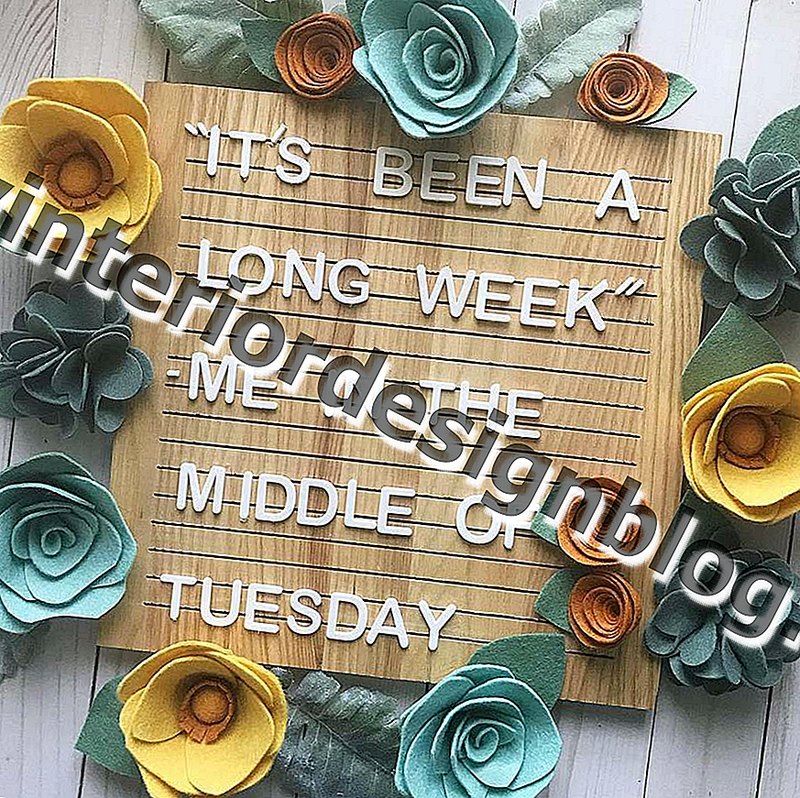 "IT'S BEEN A
LONG WEEK"
-ME THE
MIDDLE OF
TUESDAY
interiordesignblog.